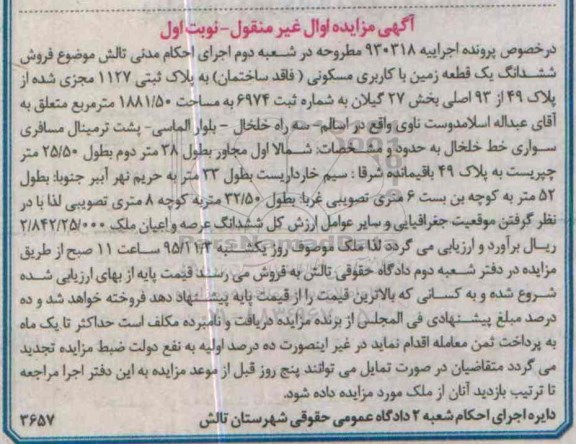 آگهی مزایده اوال غیر منقول - نوبت اول
درخصوص پرونده اجراییه ۹۳۰۳۱۸ مطروحه در شعبه دوم اجرای احکام مدنی تالش موضوع فروش
ششدانگ یک قطعه زمین با کاربری مسکونی (فاقد ساختمان) به پلاک ثبتی ۱۱۲۷ مجزی شده از
پلاک ۴۹ از ۹۳ اصلی بخش ۲۷ گیلان به شماره ثبت ۶۹۷۴ به مساحت ۱۸۸۱/۵۰ مترمربع متعلق به
آقای عبداله اسلامدوست ناوی واقع در اسالم - سه راه خلخال - بلوار الماسی - پشت ترمینال مسافری
سواری خط خلخال به حدود و مشخصات: شمالا اول مجاور بطول ۳۸ متر دوم بطول ۲۵/۵۰ متر
چپریست به پلاک ۴۹ باقیمانده شرقا : سیم خارداریست بطول ۳۳ متر به حریم نهر آببر جنوبا: بطول
۵۲ متر به کوچه بن بست ۶ متری تصویبی غربا: بطول ۳۲/۵۰ متربه کوچه ۸ متری تصویبی لذا با در
نظر گرفتن موقعیت جغرافیایی و سایر عوامل ارزش کل ششدانگ عرصه و اعیان ملک ۲/۸۴۲/۲۵/۰۰۰
ریال برآورد و ارزیابی می گردد لذا ملک موصوف روز یکشنبه ۹۵/۱/۲۳ ساعت ۱۱ صبح از طریق
مزایده در دفتر شعبه دوم دادگاه حقوقی تالش به فروش می رسد قیمت پایه از بهای ارزیابی شده
شروع شده و به کسانی که بالاترین قیمت را از قیمت پایه پیشنهاد دهد فروخته خواهد شد و ده
درصد مبلغ پیشنهادی فی المجلس از برنده مزایده دریافت و نامبرده مکلف است حداکثر تا یک ماه
به پرداخت ثمن معامله اقدام نماید در غیر اینصورت ده درصد اولیه به نفع دولت ضبط مزایده تجدید
می گردد متقاضیان در صورت تمایل می توانند پنج روز قبل از موعد مزایده به این دفتر اجرا مراجعه
تا ترتیب بازدید آنان از ملک مورد مزایده داده شود.
دایره اجرای احکام شعبه ۲ دادگاه عمومی حقوقی شهرستان تالش ۳۶۵۷